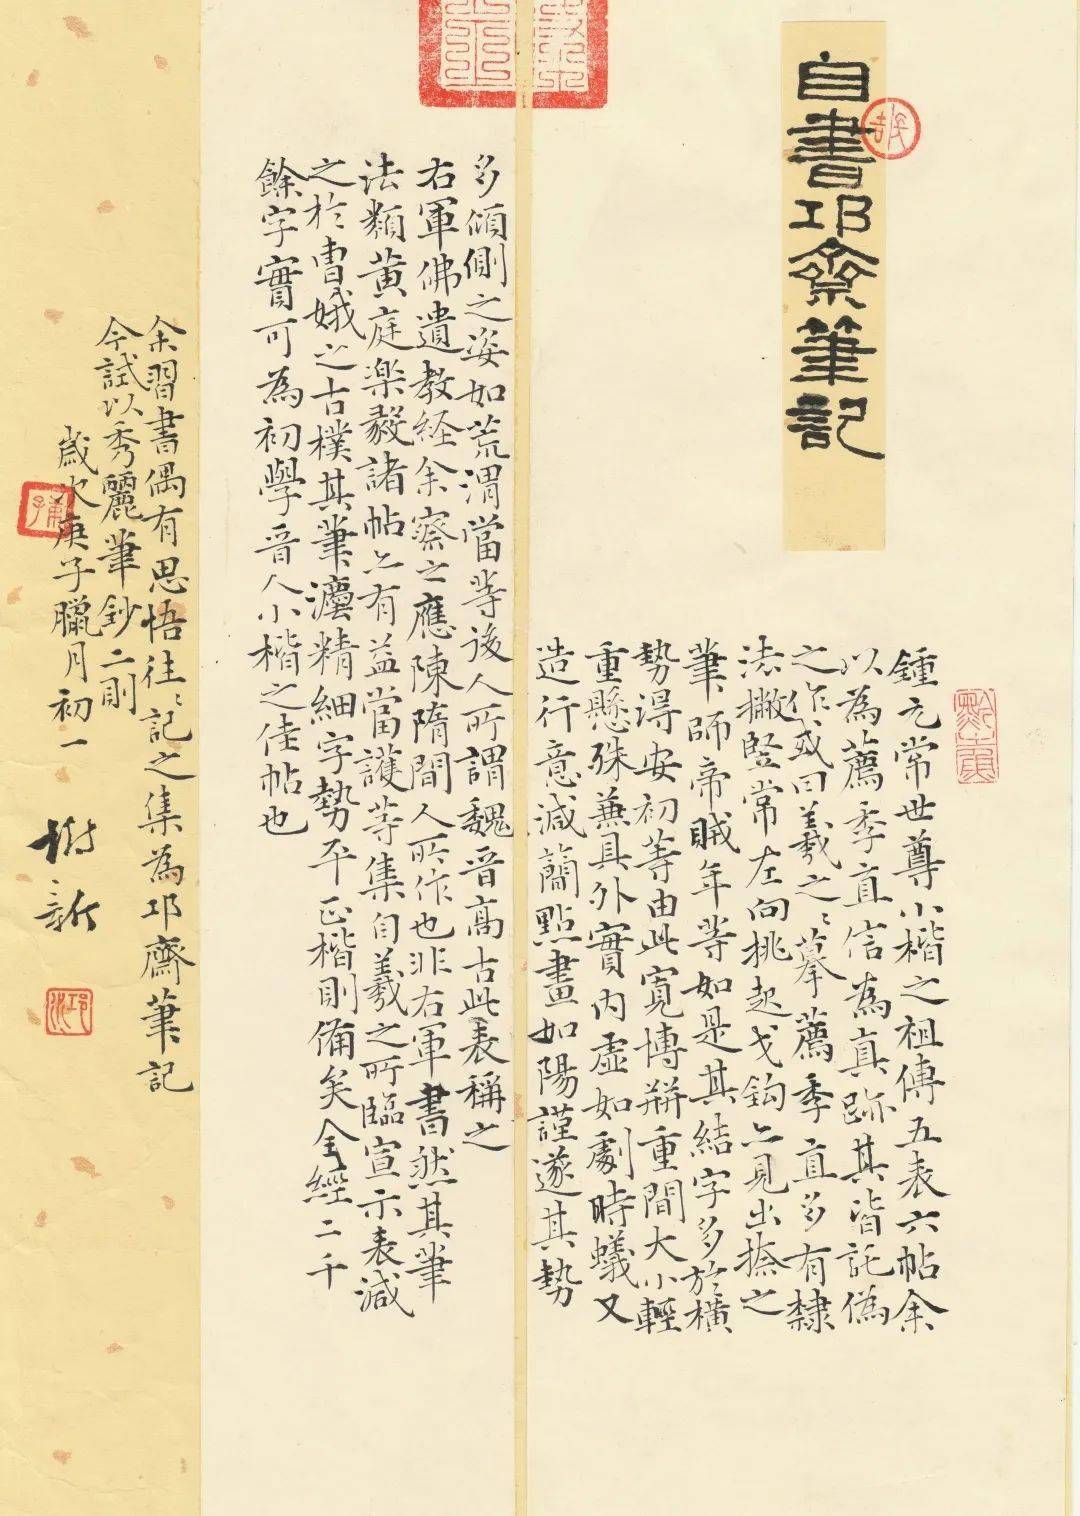 自書邛齋筆記
鍾元常世尊小楷之祖傳五表六帖余
以為薦季直信為真跡其皆託偽
之作或曰羲之〻摹薦季直多有隸
法撇豎常左向挑起戈鈎亦見出捺之
筆師帝賊年等如是其結字多於橫
勢得安初等由此寬博形重間大小輕
重懸殊兼具外實內虛如劇時蟻又
造行意減簡點畫如陽謹遂其勢
多傾側之姿如荒渭當等後人所謂魏晉高古此表稱之
右軍佛遺教経余察之應陳隋間人所作也非右軍書然其筆
法類黃庭楽毅諸帖亦有益當護等集自羲之所臨宣示表減
之於曹娥之古樸其筆灋精細字勢平正楷則備矣全經二千
餘字實可為初學晉人小楷之佳帖也
余習書偶有思悟往〻記之集為邛齋筆記
今試以秀麗筆鈔二則
歲次庚子臘月初一